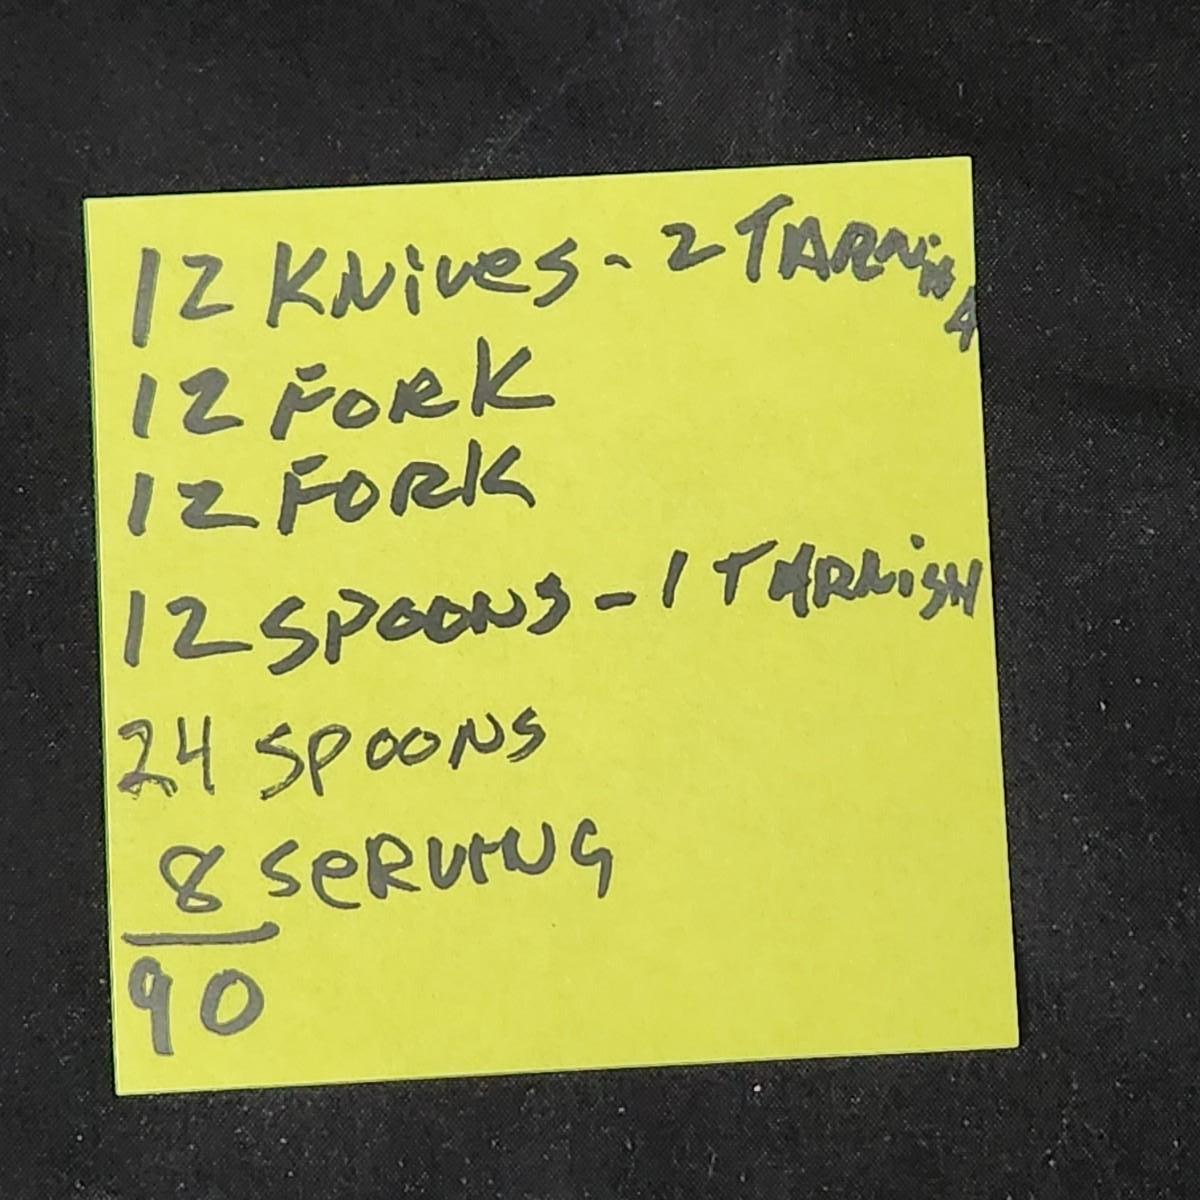 12 KNives - 2 TARNish
12 FORK
12 FORK
12 SPOONS - 1 TARNiSH
24 SPOONS
8 SeRVING
90